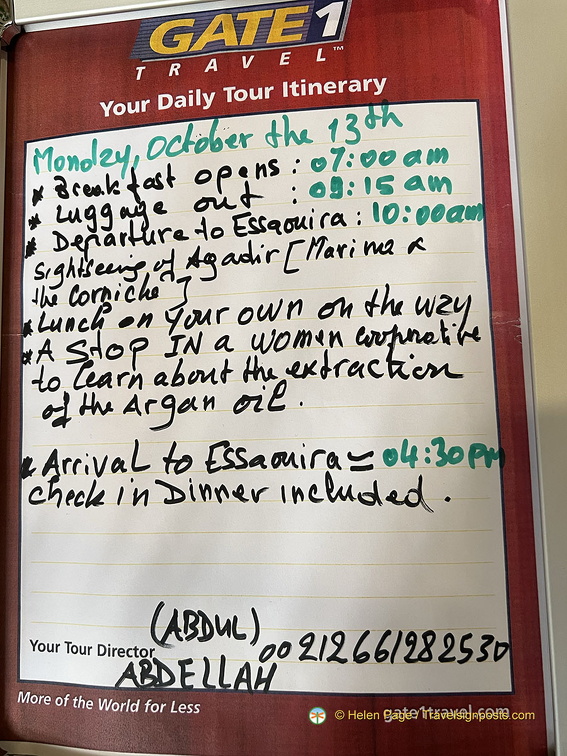 GATE 1
TRAVEL™
Your Daily Tour Itinerary
Monday, October the 13th
* Breakfast opens : 07:00 am
* Luggage out : 09:15 am
* Departure to Essaouira : 10:00am
Sightseeing of Agadir [Marina &
the Corniche]
* Lunch on your own on the way
* A Stop IN a women cooperative
to learn about the extraction
of the Argan oil.
* Arrival to Essaouira ≃ 04:30pm
check in Dinner included.
(ABDUL)
Your Tour Director 00212661282530
ABDELLAH
More of the World for Less
gate1travel.com
© Helen Page: Travelsignposts.com